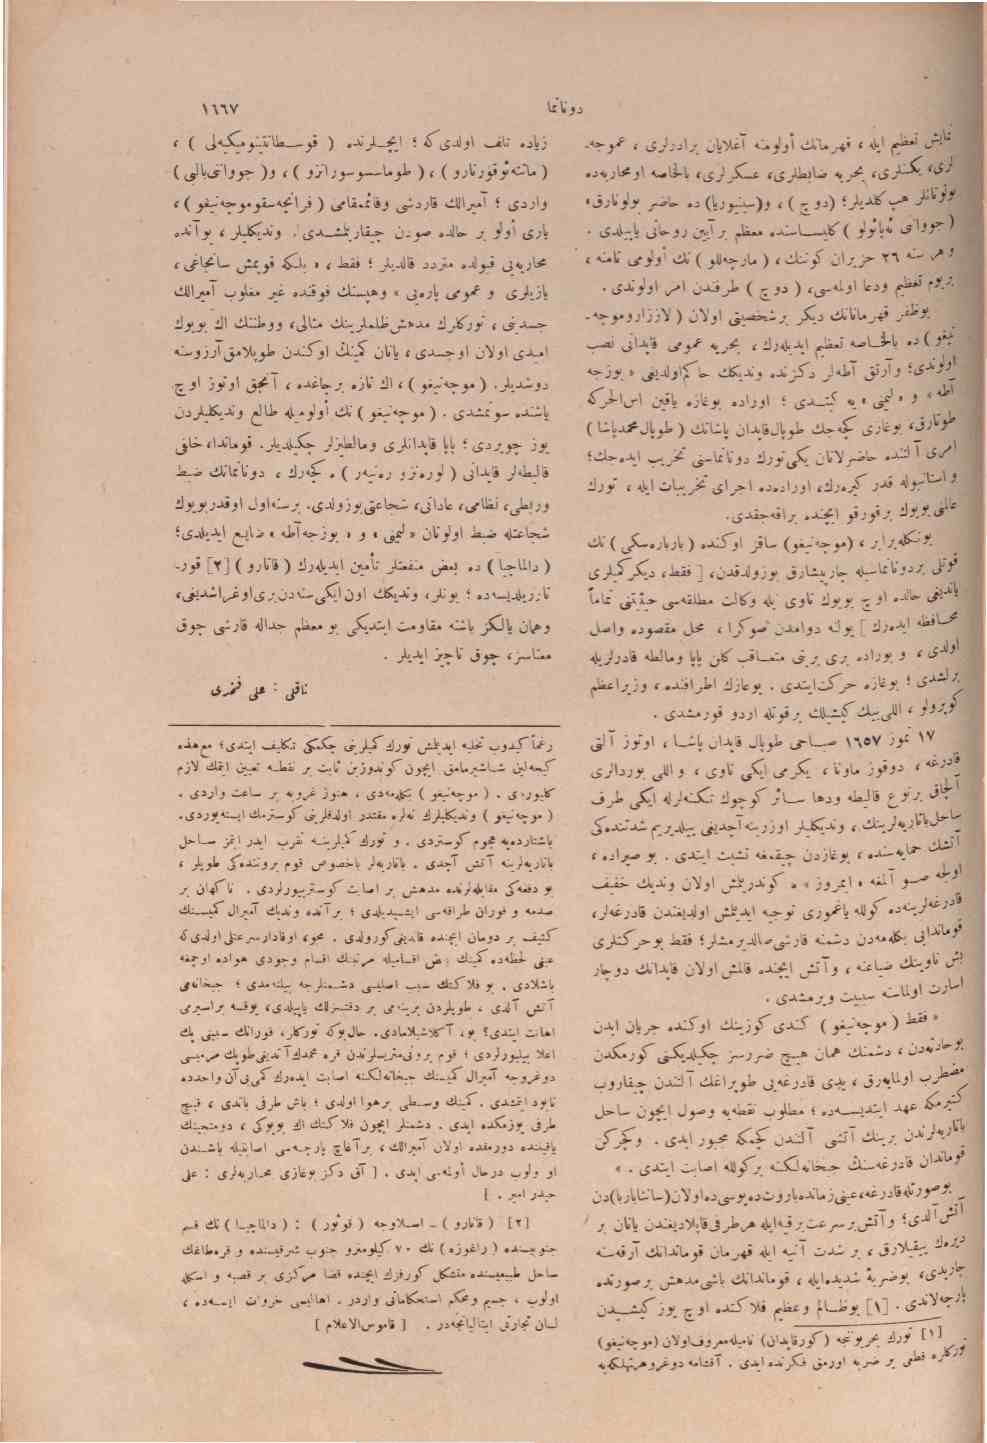 دونانما
١٦٦٧
نمایش تعظیم ایله ، قهرمانك أولومنه آغلایان برادرلری ، عموجه-
لری، یكنلری، بحریه ضابطلری، عسكرلری، بالخاصه اومحاربه‌ده
بولونانلر هپ كلدیلر؛ (دوج ) ، و(سینیوریا) ده حاضر بولونارق،
(جووانی ئه‌پائولو ) كلیساسنده معظم بر آیین روحانی یاپیلدی .
وهر سنه ٢٦ حزیران كوننك ، ( مارچه‌للو ) نك أولومی نامنه ،
بریوم تعظیم ودعا اولمه‌سی، ( دوج ) طرفندن امر اولوندی .
بوظفر قهرمانانك دیكر برشخصیتی اولان ( لاززاروموچه-
نیغو ) ده بالخاصه تعظیم ایدیله‌رك ، بحریه عمومی قاپدانی نصب
اولوندی؛ وآرتق آطه‌لر دكزنده وندیكك حاكم‌اولدیغی « بوزجه
آطه » و « لیمنی » یه كیتدی ؛ اوراده بوغازه یاقین اس‌الحركه
طوتارق، بوغازی كچه‌جك طوپال‌قاپدان پاشانك ( طوپال محمدپاشا )
امری آلتنده حاضرلانان یكی‌تورك دونانماسنی تخریب ایده‌جك؛
و استانبوله قدر كیره‌رك، اوراده‌ده اجرای تخریبات ایله ، تورك
عالمنی بویوك برقورقو ایچنده براقه‌جقدی.
بونكله‌برابر ، (موچه‌نیغو) ساقز اوكنده (بارباره‌سكی ) نك
قوتلی بردونانماسیله چارپیشارق بوزولدقدن، [ فقط، دیكركمیلری
یاندیغی حالده اوچ بویوك ناوی یله وكالت مطلقه‌سی حیثیتنی تماماً
محافظه ایده‌رك ] یولنه دوامدن صوكرا ، محل مقصوده واصل
اولدی ، و بوراده بری برینی متعاقب كلن پاپا ومالطه قادرلریله
برلشدی ؛ بوغازه حركت‌ایتدی . بوغازك اطرافنده ، وزیراعظم
كوپرولو ، اللی‌بیك كیشیلك برقوتله اردو قورمشدی .
١٧ تموز ١٦٥٧ صباحی طوپال قاپدان پاشا ، اوتوز آلتی
قادرغه ، دوقوز ماونا ، یكرمی ایكی ناوی ، و اللی بوردالری
آلچاق برنوع قالیطه ودها سائر كوچوك تكنه‌لرله ایكی طرف
ساحل‌باتاریه‌لرینك ، وندیكلیلر اوزرینه‌آچدیغی ییلدیریم شدتنده‌كی
آتشك حمایه‌سنده ، بوغازدن چیقمغه تشبث ایتدی . بو صیراده ،
اولجه صو آلمغه « ایمروز » ه كوندریلمش اولان وندیك خفیف
قادرغه‌لرینه‌ده كولله یاغموری توجیه ایدیلمش اولدیغندن قادرغه‌لر،
قوماندایی بكله‌مه‌دن دشمنه قارشی صالدیرمشلر؛ فقط بوحركتلری
بش ناوینك ضیاعنه ، وآتش ایچنده قالمش اولان قاپدانك دوچار
اسارت اولماسنه سببیت ویرمشدی .
« فقط ( موچه‌نیغو ) كندی كوزینك اوكنده جریان ایدن
بوحادثه‌دن ، دشمنك همان هیچ ضررسز چكیلدیكنی كورمكدن
مضطرب اولمایه‌رق ، یدی قادرغه‌یی طوپراغك آلتندن چیقاروب
كتیرمكه عهد ایتدیسه‌ده ؛ مطلوب نقطه‌یه وصول ایچون ساحل
باتاریه‌لرندن برینك آتشی آلتندن كچمكه مجبور ایدی . وكچركن
قوماندان قادرغه‌سنك جبخانه‌لكنه بركولله اصابت ایتدی . »
بوصورتله‌قادرغه، عینی زمانده‌باروت‌ده پوسی‌ده‌اولان(سانتاباربا)دن
آتش‌آلدی؛ وآتش برسرعت برقیه‌ایله هرطرفی‌قاپلادیغندن یانان بر
دیره‌ك ییقیلارق ، بر شدت آنیه ایله قهرمان قوماندانك آرقه‌سنه
چارپدی، بوضربهٔ شدیده‌ایله ، قوماندانك باشی مدهش برصورتده
پارچه‌لاندی . [١] بوظالم وعظیم فلاكتده اوچ یوز كیشیدن
[١] تورك بحریونجه (كورقاپدان) نامیله‌معروف‌اولان (موچه‌نیغو)
توركلره قطعی بر ضربه اورمق فكرنده ایدی . آقشامه دوغروهرتهلكه‌یه
زیاده تلف اولدی‌كه ؛ ایچلرنده ( قوسطانتینومیكیه‌لی ) ،
( مانته‌ئوقورنارو ) ، ( طوماسوسورانزو ) ، و( جووانی‌بالبی )
واردی ؛ آمیرالك قاردشی وقائممقامی ( فرانچه‌سقوموچه‌نیغو ) ،
یاری أولو بر حالده صودن چیقاریلمشدی . وندیكلیلر ، بوآنده
محاربه‌یی قبولده متردد قالدیلر ؛ فقط ، « بلكه قویمش سانجاغی ،
یازیلری و عمومی پاره‌یی » وهپسنك فوقنده غیر مغلوب آمیرالك
جسدینی ، توركلرك مدهش‌ظلملرینك مثالی، ووطننك اك بویوك
امیدی اولان اوجسدی ، یانان كمینك اوكندن طوپلامق‌آرزوسنه
دوشدیلر. ( موچه‌نیغو ) ، اك تازه برچاغده ، آنجق اوتوز اوچ
یاشنده سونمشدی . ( موچه‌نیغو ) نك أولومیله طالع وندیكلیلردن
یوز چویردی ؛ پاپا قاپدانلری ومالطیزلر چكیلدیلر. قوماندا، خلفی
قالیطه‌لر قاپدانی ( لوره‌نزو ره‌نیه‌ر ) ه كچه‌رك ، دونانمانك ضبط
وربطی، نظامی، عاداتی، شجاعتی‌بوزولدی. برسنه‌اول اوقدربویوك
شجاعتله ضبط اولونان « لیمنی » و « بوزجه‌آطه » ضایع ایدیلدی؛
( دالماچیا ) ده بعض منفعتلر تأمین ایدیله‌رك ( قاتارو ) [٢] قور-
تاریلدیسه‌ده ؛ بونلر، وندیكك اون‌ایكی‌سنه‌دن‌بری‌اوغراشدیغی،
وهمان یالكز باشنه مقاومت ایتدیكی بو معظم جداله قارشی چوق
معناسز، چوق ناچیز ایدیلر .
ناقلی : علی فخری
رغماً كیدوب تخلیه ایدیلمش تورك كمیلرینی چكمكی تكلیف ایتدی؛ مع‌هذه
كیجه‌لین شاشیرمامق ایچون كوندوزین ثابت بر نقطه تعیین ایتمك لازم
كلیوردی . ( موچه‌نیغو ) بكله‌مه‌دی ، هنوز غروبه بر ساعت واردی .
( موچه‌نیغو ) وندیكلیلرك نه‌لره مقتدر اولدقلرینی كوسترمك ایسته‌یوردی.
باشتارده‌یه هجوم كوستردی . و تورك كمیلرینه تقرب ایدر ایتمز ساحل
باتاریه‌لرینه آتش آچدی . باتاریه‌لر باخصوص قوم بروننده‌كی طوپلر ،
بو دفعه‌كی مقابله‌لرنده مدهش بر اصابت كوستریبورلردی . ناكهان بر
صدمه و فوران طراقه‌سی ایشیدیلدی ؛ برآنده وندیك آمیرال كمیسنك
كثیف بر دومان ایچنده قالدیغی‌كورولدی . محو، اوقدارسرعتلی اولدی‌كه
عینی لحظه‌ده كمینك بعض اقسامیله مرتبنك اقسام وجودی هواده اوچمغه
باشلادی . بو فلاكتك سبب اصلیسی دشمنلرجه بیلنه‌مدی ؛ جبخانه‌می
آتش آلدی ، طوپلردن برینه‌می بر دقتسزلك یاپیلدی، یوقسه براسیرمی
اهانت ایتدی؟ بو، آكلاشیلامادی. حال‌بوكه توركلر، فورانك سببنی پك
اعلا بیلیورلردی ؛ قوم برونی‌متریسلرندن قره محمدك‌آتدیغی‌طوپك مرمیسی
دوغروجه آمیرال كمیسنك جبخانه‌لكنه اصابت ایده‌رك كمی‌یی‌آن واحدده
نابود ایتمشدی . كمینك وسطی برهوا اولدی ؛ باش طرفی باتدی ، قیچ
طرفی یوزمكده ایدی . دشمنلر ایچون فلاكتك اك بویوكی ، دومنجینك
یاقیننده دورمقده اولان آمیرالك ، برآغاج پارچه‌سی اصابتیله باشندن
او ولوب درحال أولمه‌سی ایدی . [ آق دكز بوغازی محاربه‌لری : علی
حیدر امیر . ]
[٢] ( قاتارو ) – اسلاوجه ( قوتور ) : ( دالماچیا ) نك قسم
جنوبیسنده ( راغوزه ) نك ٧٠ كیلومترو جنوب شرقیسنده و قره‌طاغك
ساحل طبیعیسنده متشكل كورفزك ایچنده قضا مركزی بر قصبه و اسكله
اولوب ، جسیم ومحكم استحكاماتی واردر . اهالیسی خروات ایسه‌ده ،
لسان تجارتی ایتالیانجه‌در . [ قاموس‌الاعلام ]